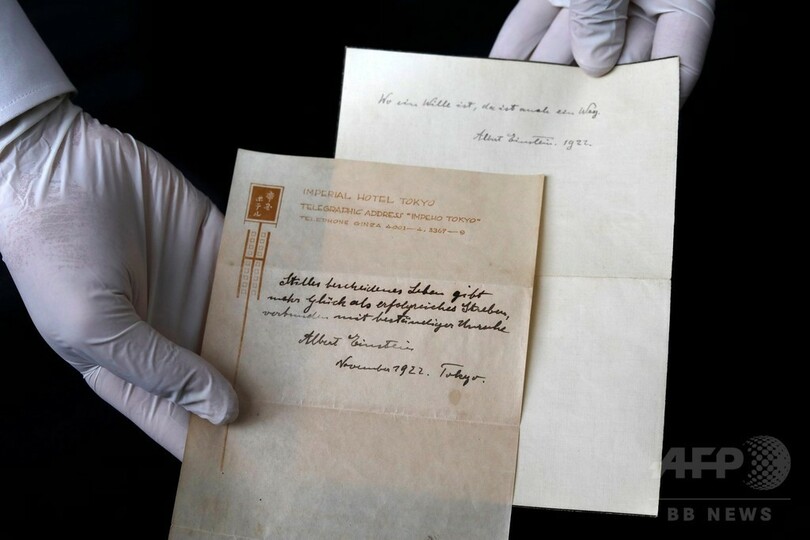 Wo ein Wille ist, da ist auch ein Weg.
Albert Einstein. 1922.
帝国
ホテル
IMPERIAL HOTEL TOKYO
TELEGRAPHIC ADDRESS "IMPEHO TOKYO"
TELEPHONE GINZA
Stilles bescheidenes Leben gibt
mehr Glück als erfolgreiches Streben,
verbunden mit beständiger Unruhe
Albert Einstein
November 1922. Tokyo.
AFP
BB NEWS